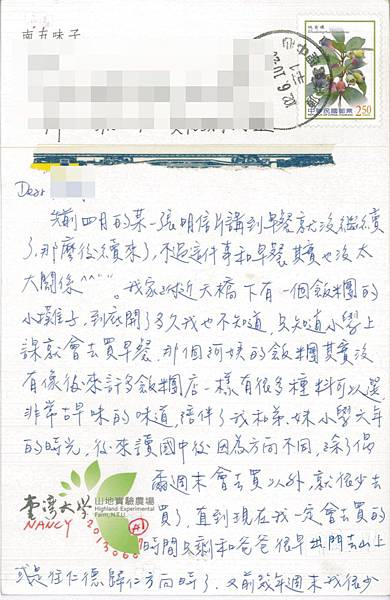 南五味子
中華民國郵票
2.50
Dear
先前四月的某一張明信片講到早餐就沒繼續
了，那麼後續來了，不過這件事和早餐其實也沒太
大關係^^"。我家附近天橋下有一個飯糰的
小攤子，到底開了多久我也不知道，只知道小學上
課就會去買早餐，那個阿姨的飯糰其實沒
有像後來許多飯糰店一樣有很多種料可以選
非常古早味的味道，陪伴了我和弟、妹小學六年
的時光，後來讀國中後因為方向不同，除了偶
爾週末會去買以外，就很少去
買了，直到現在我一定會去買的
時間只剩和爸爸很早出門去山上
或是往仁德歸仁方向時了，又前幾年週末我很少
臺灣大學
山地實驗農場
Highland Experimental
Farm, N.T.U.
NANCY